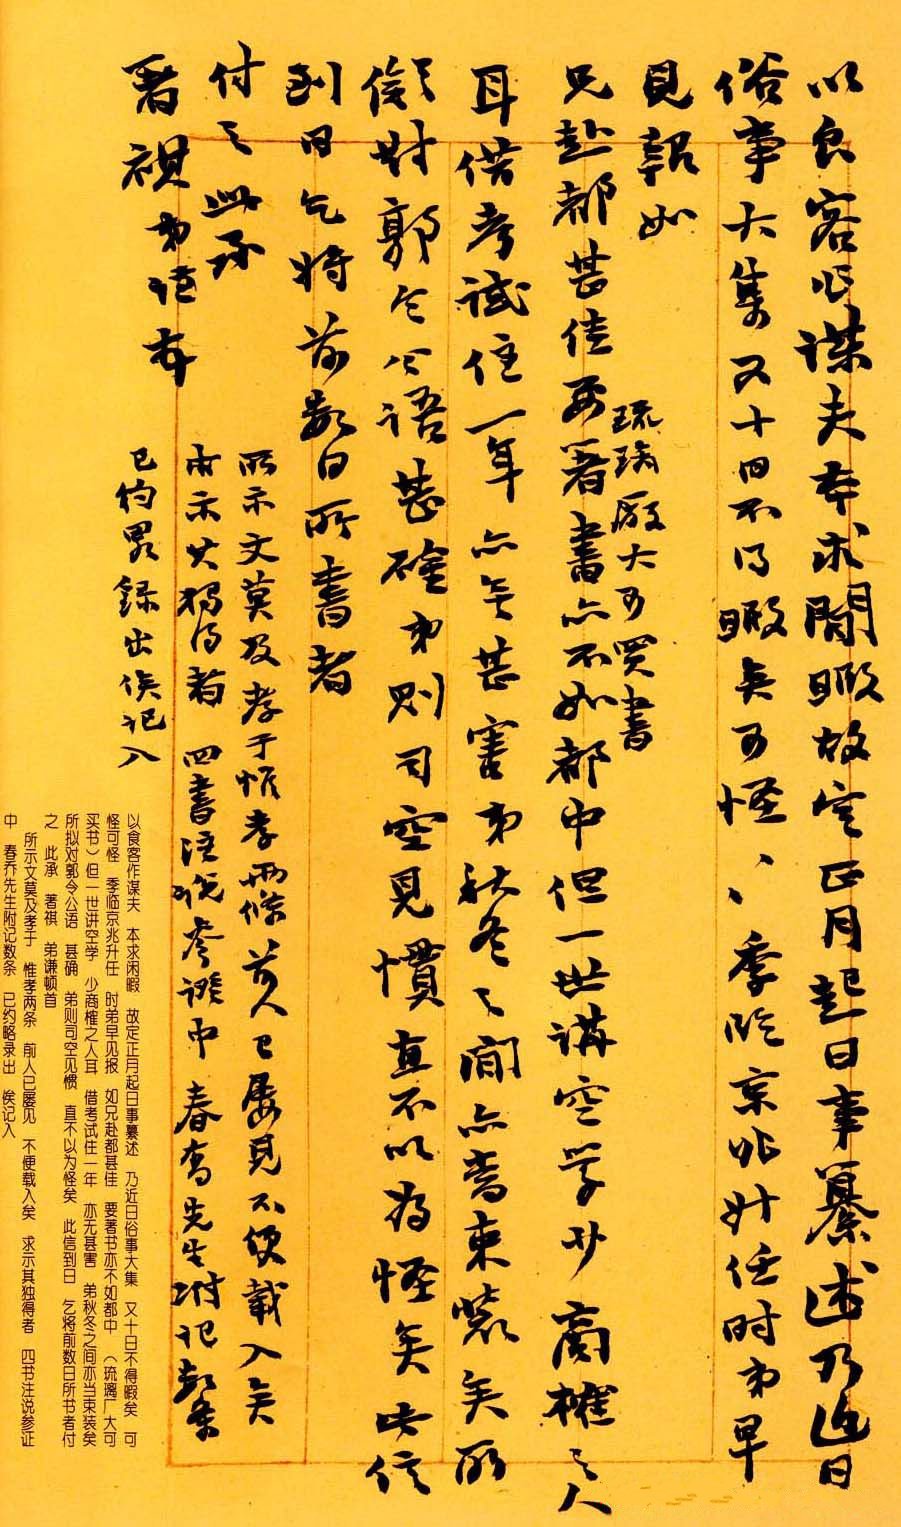 以食客作謀夫本求閒暇故定正月起日事纂述乃近日
俗事大集又十日不得暇矣可怪〻季临京兆升任时弟早
見報如
兄赴都甚佳要著書亦不如都中但一世講空学少商榷之人
琉璃厰大可買書
耳借考試住一年亦无甚害弟秋冬之间亦當束裝矣所
儗对郭令公語甚確弟則司空見慣直不以為怪矣此信
到日乞将前數日所書者
付之此承
著祺弟謙頓首
所示文莫及孝于惟孝兩條前人已屡見不便載入矣
求示其獨得者 四書注说参證中春喬先生附记數条
已约畧録出俟记入
以食客作谋夫 本求闲暇 故定正月起日事纂述 乃近日俗事大集 又十日不得暇矣 可
怪可怪 季临京兆升任 时弟早见报 如兄赴都甚佳 要著书亦不如都中 （琉璃厂大可
买书）但一世讲空学 少商榷之人耳 借考试住一年 亦无甚害 弟秋冬之间亦当束装矣
所拟对郭令公语 甚确 弟则司空见惯 直不以为怪矣 此信到日 乞将前数日所书者付
之 此承 著祺 弟谦顿首
所示文莫及孝于 惟孝两条 前人已屡见 不便载入矣 求示其独得者 四书注说参证
中 春乔先生附记数条 已约略录出 俟记入